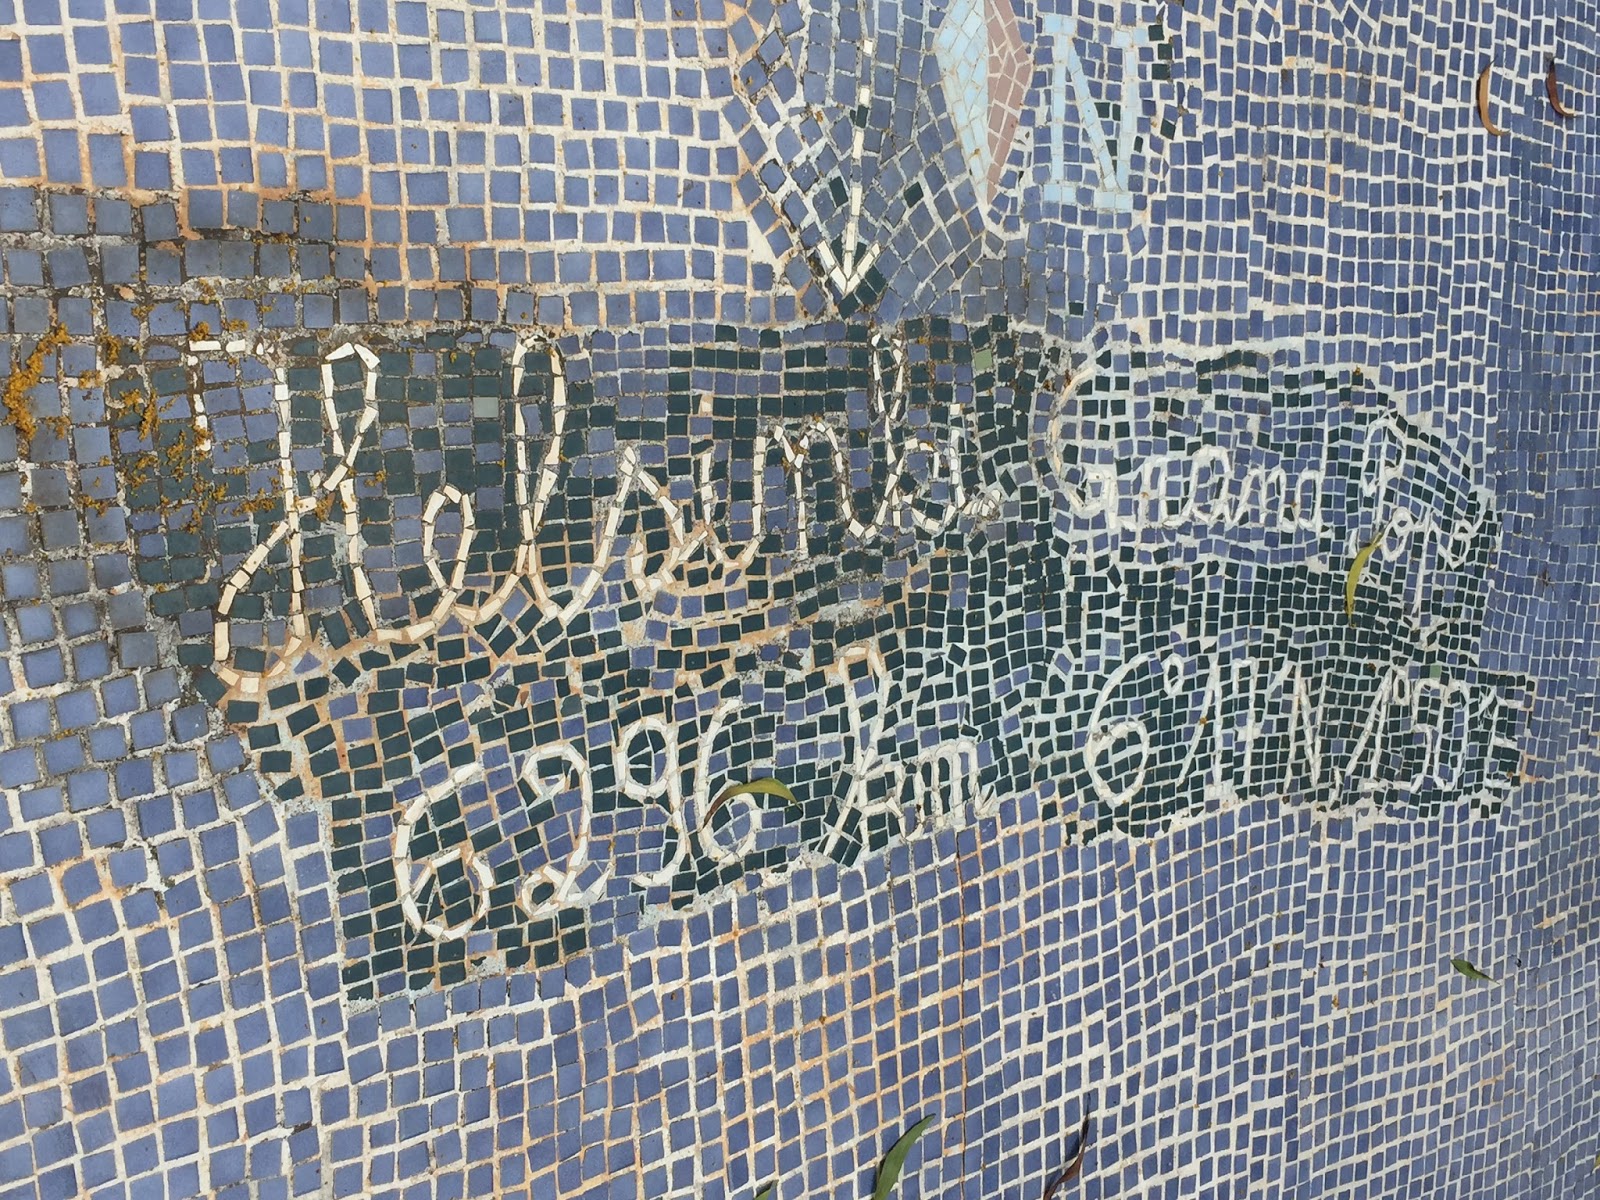 N
Helsinki Grand Popo
6296 km 6°17'N, 1°50'E